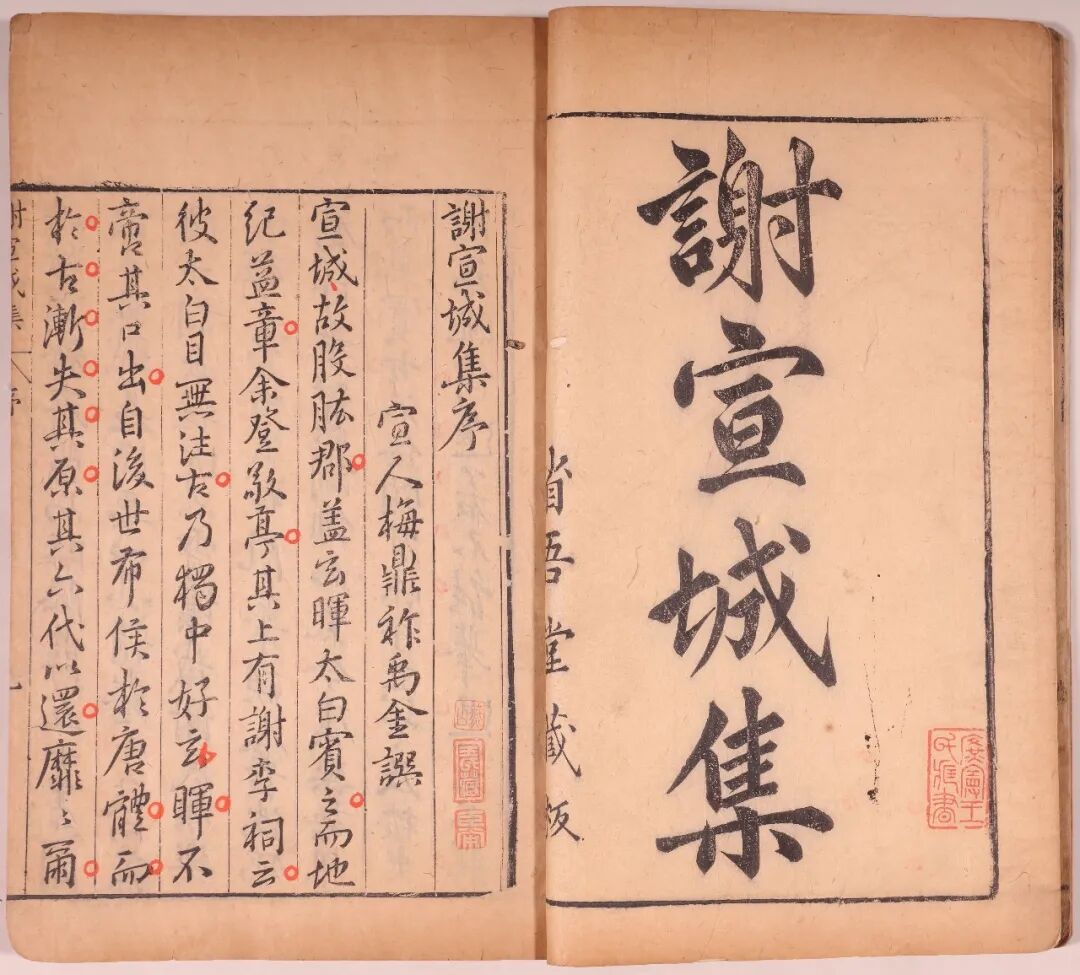 謝宣城集
省吾堂藏板
謝宣城集序
宣人梅鼎祚禹金譔
宣城故股肱郡蓋玄暉太白賓之而地
紀益章余登敬亭其上有謝李祠云
彼太白目無注古乃獨中好玄暉不
啻其口出自後世希侯於唐體而
於古漸失其原其六代以還靡〻爾
謝宣城集
序